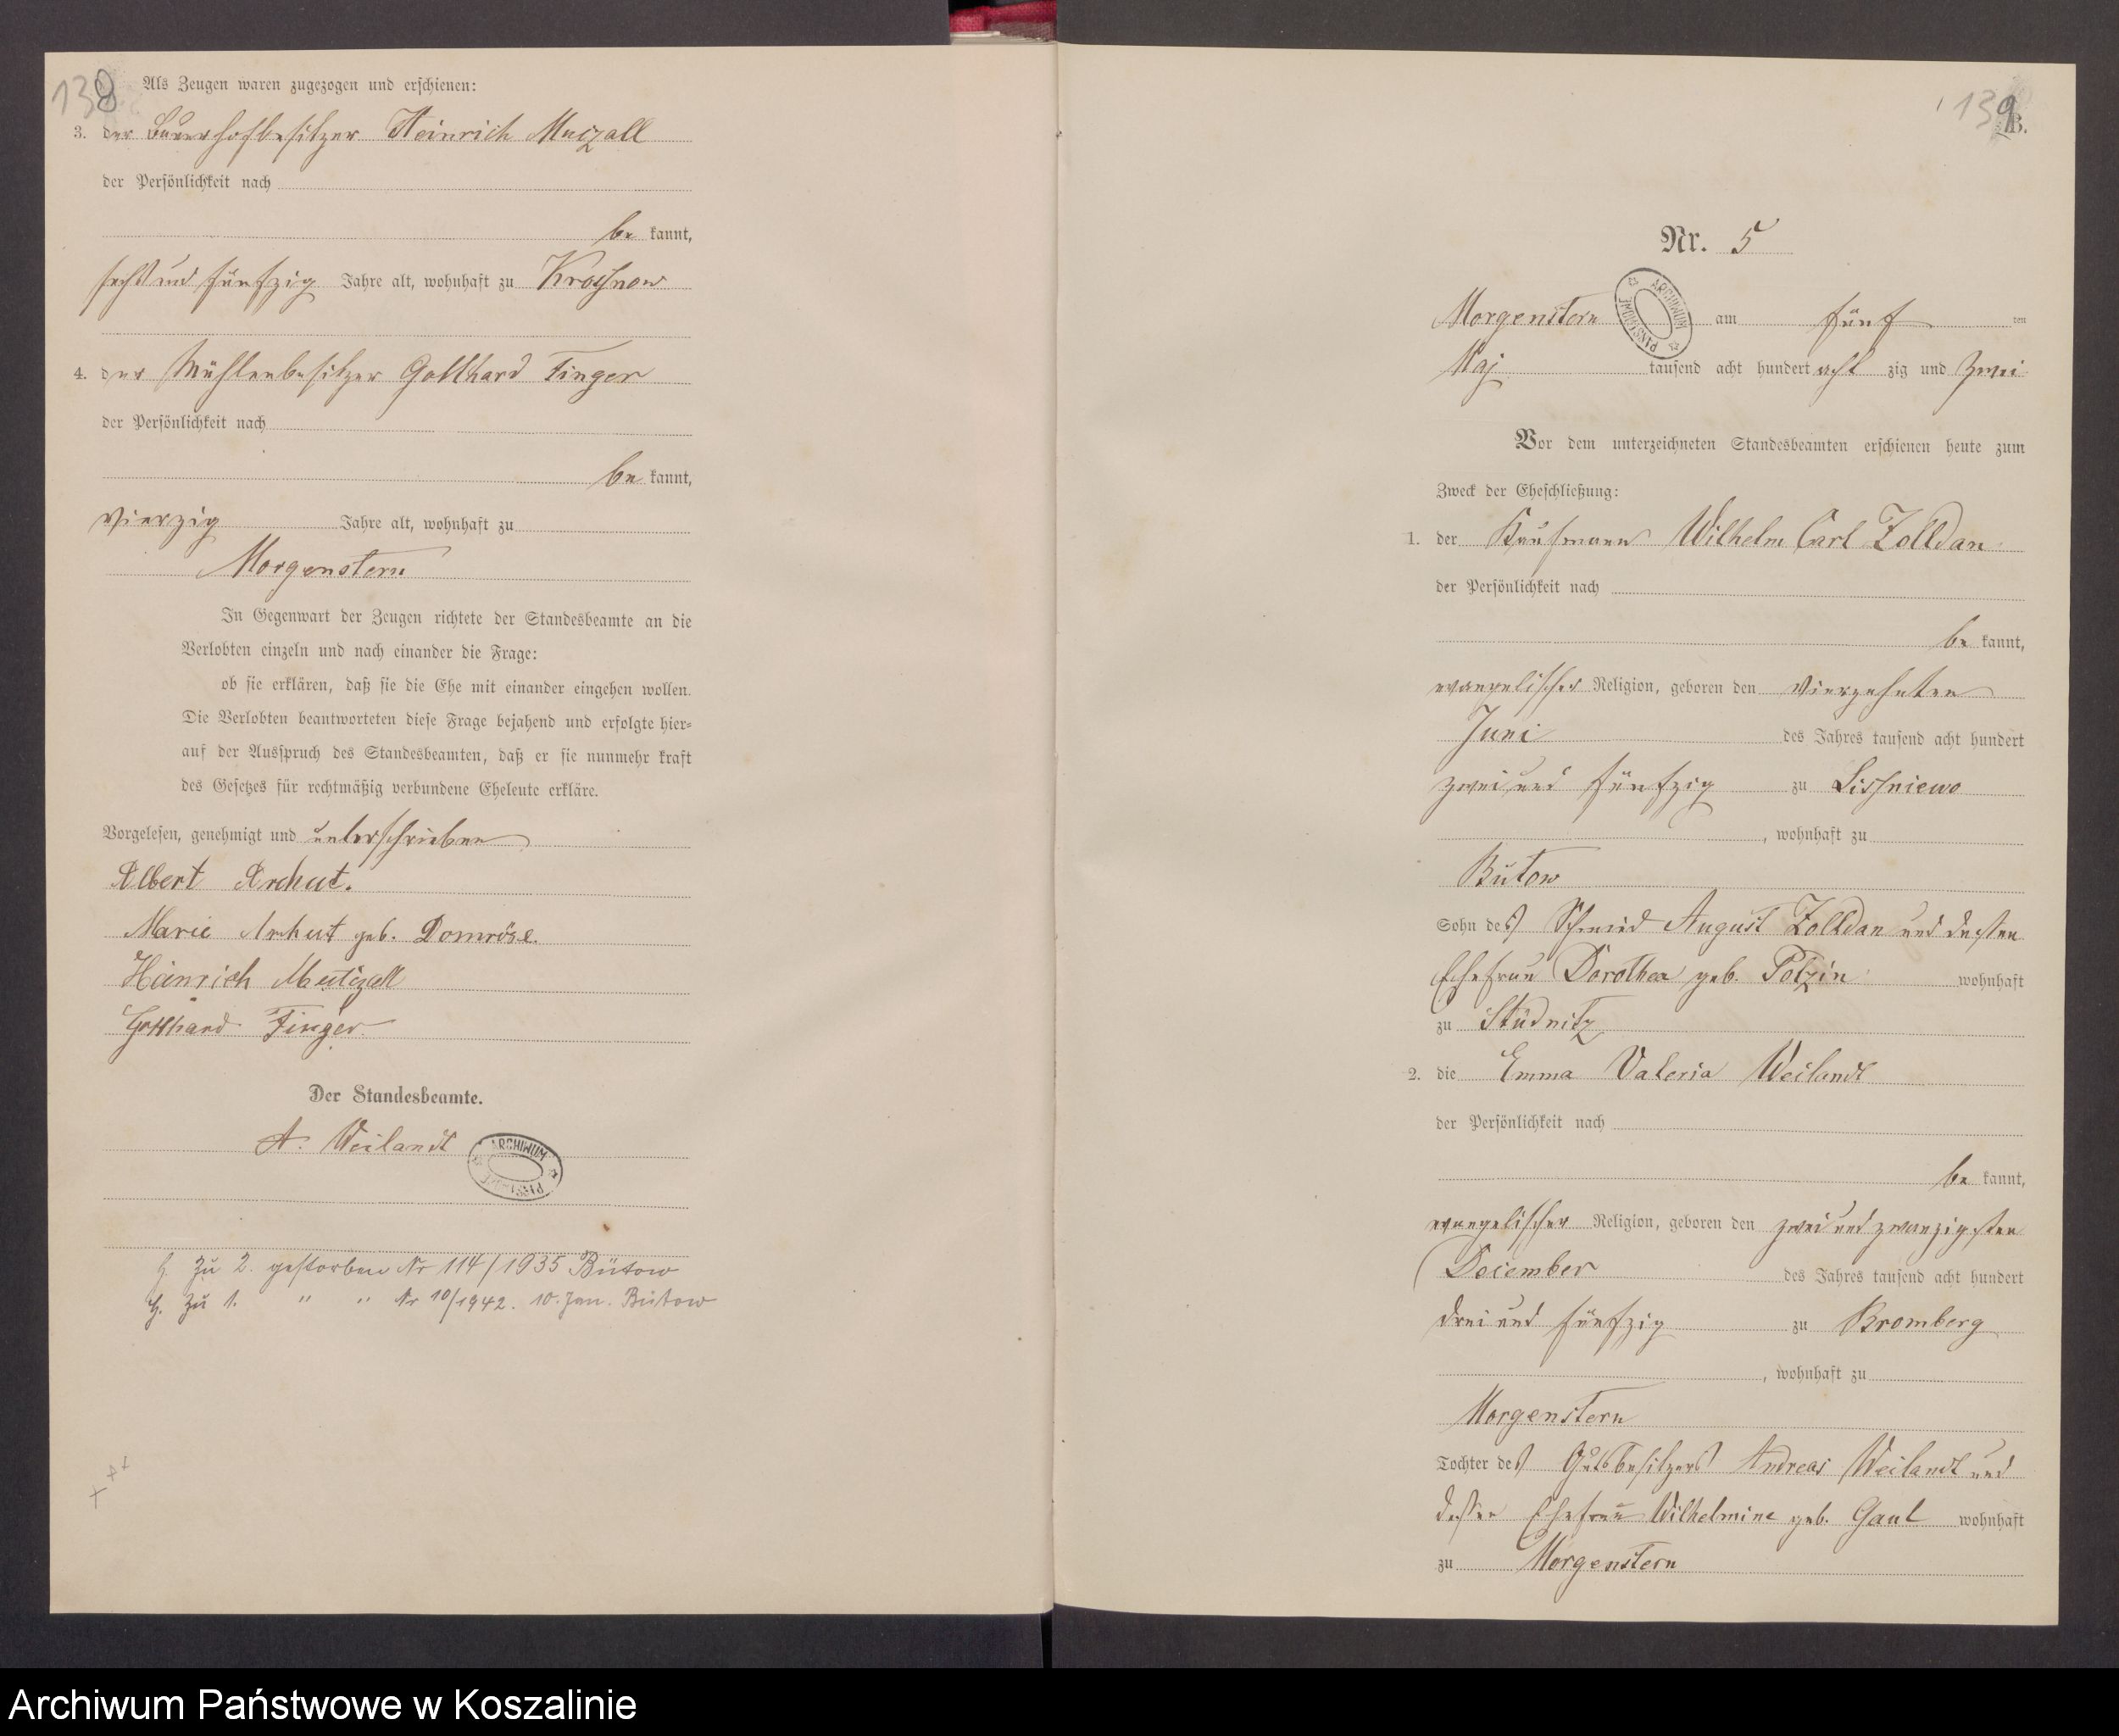 138
Als Zeugen waren zugezogen und erschienen:
3. der Bauerhofbesitzer Heinrich Muczall
der Persönlichkeit nach
be kannt,
sechs und fünfzig Jahre alt, wohnhaft zu Krossnow
4. der Mühlenbesitzer Gotthard Finger
der Persönlichkeit nach
be kannt,
vierzig Jahre alt, wohnhaft zu
Morgenstern
In Gegenwart der Zeugen richtete der Standesbeamte an die
Verlobten einzeln und nach einander die Frage:
ob sie erklären, daß sie die Ehe mit einander eingehen wollen.
Die Verlobten beantworteten diese Frage bejahend und erfolgte hier-
auf der Ausspruch des Standesbeamten, daß er sie nunmehr kraft
des Gesetzes für rechtmäßig verbundene Eheleute erkläre.
Vorgelesen, genehmigt und unterschrieben
Albert Archut.
Marie Archut geb. Domröse.
Heinrich
Gotthard Finger
Der Standesbeamte.
A. Weilandt
ARCHIWUM PAŃSTWOWE
H. zu 2. gestorben Nr 114/1935 Bütow
H. zu 1. " " Nr 10/1942. 10. Jan. Bütow
139
B.
Nr. 5
Morgenstern am fünf ten
ARCHIWUM PAŃSTWOWE
Maj tausend acht hundert acht zig und zwei
Vor dem unterzeichneten Standesbeamten erschienen heute zum
Zweck der Eheschließung:
1. der Kaufmann Wilhelm Carl Zolldan
der Persönlichkeit nach
be kannt,
evangelischer Religion, geboren den vierzehnten
Juni des Jahres tausend acht hundert
zwei und fünfzig zu Lissniewo
, wohnhaft zu
Bütow
Sohn des Schmied August Zolldan und dessen
Ehefrau Dorothea geb. Polzin wohnhaft
zu Stüdnitz
2. die Emma Valeria Weilandt
der Persönlichkeit nach
be kannt,
evangelischer Religion, geboren den zwei und zwanzigsten
December des Jahres tausend acht hundert
drei und fünfzig zu Bromberg
, wohnhaft zu
Morgenstern
Tochter des Gutsbesitzers Andreas Weilandt und
dessen Ehefrau Wilhelmine geb. Gaul wohnhaft
zu Morgenstern
Archiwum Państwowe w Koszalinie